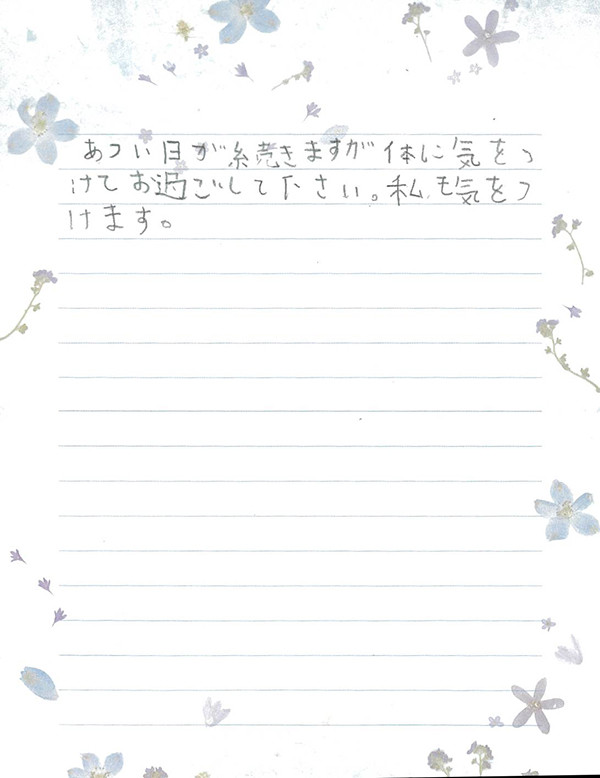 あつい日が続きますが体に気をつ
けてお過ごして下さい。私も気をつ
けます。